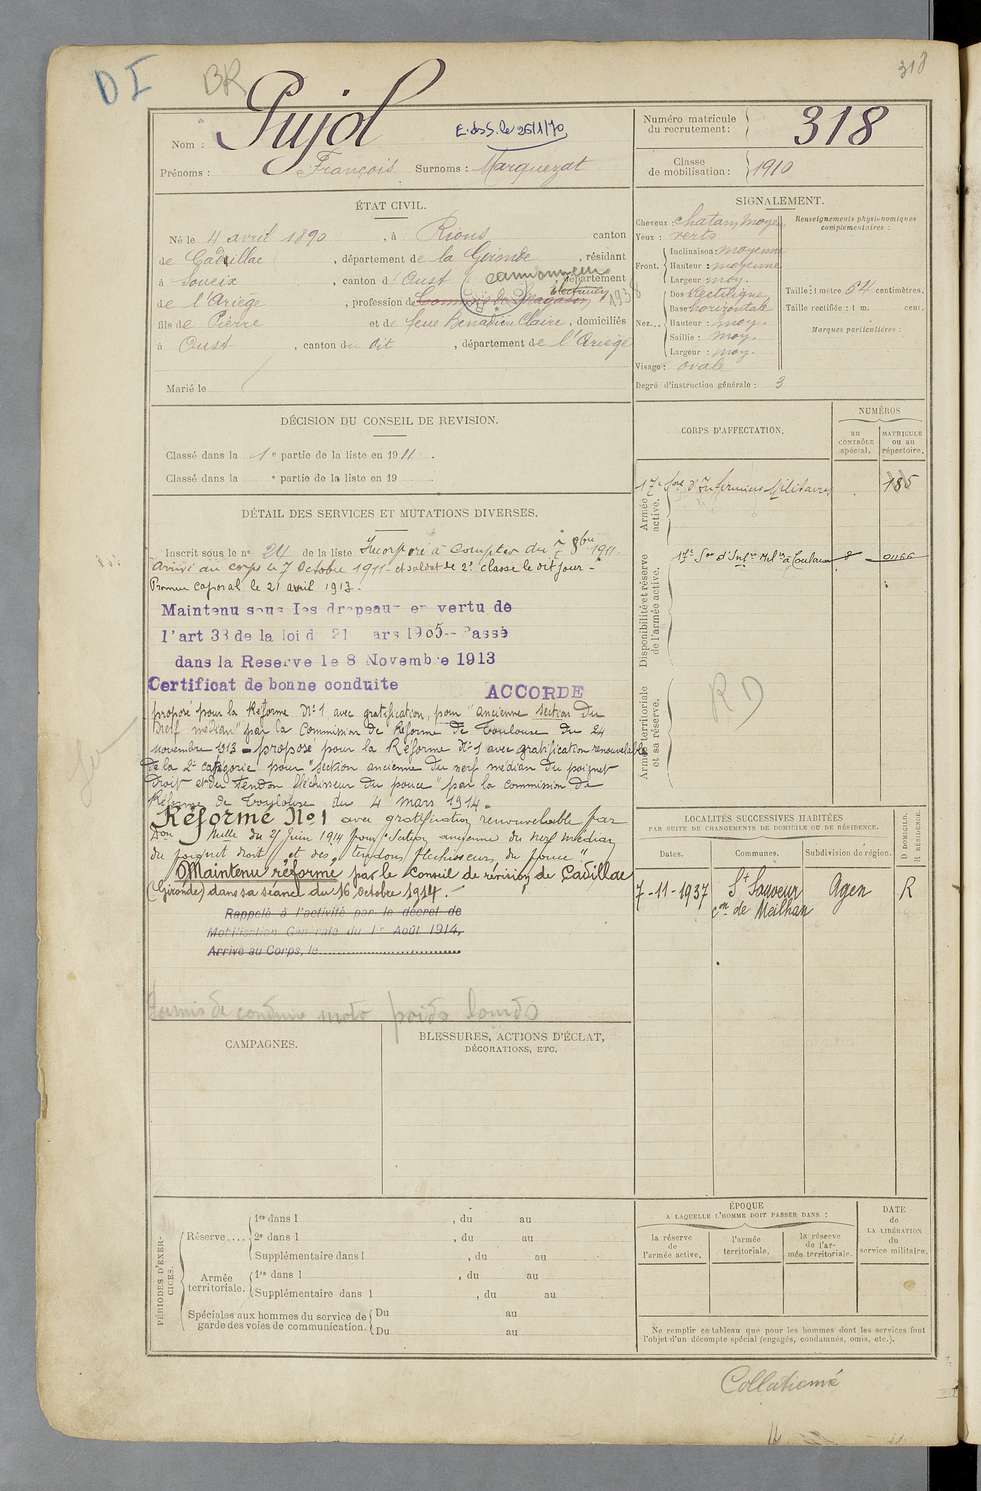 DI
BR
318
Nom : Pujol
E. des S. le 26/1/70
Prénoms : François Surnoms : Marquezat
Numéro matricule du recrutement : 318
Classe de mobilisation : 1910
ÉTAT CIVIL.
Né le 4 avril 1890, à Rions canton
de Cadillac, département de la Gironde, résidant
à Soueix, canton d'Oust département
camionneur
électricien 1938
de l'Ariège, profession de Commis de Magasin
fils de Pierre et de feue Benazim Claire, domiciliés
à Oust, canton du dit, département de l'Ariège
Marié le
SIGNALEMENT.
Cheveux : chatain moyen
Yeux : verts
Front. Inclinaison : moyenne
Hauteur : moyenne
Largeur : moy.
Nez... Dos : rectiligne
Base : horizontale
Hauteur : moy.
Saillie : moy.
Largeur : moy.
Visage : ovale
Renseignements physionomiques complémentaires :
Taille : 1 mètre 64 centimètres.
Taille rectifiée : 1 m. cent.
Marques particulières :
Degré d'instruction générale : 3
DÉCISION DU CONSEIL DE REVISION.
Classé dans la 1e partie de la liste en 1911.
Classé dans la e partie de la liste en 19 .
CORPS D'AFFECTATION.
NUMÉROS
au CONTRÔLE spécial.
MATRICULE ou au répertoire.
Armée active.
17e Son d'Infirmiers Militaires 185
Disponibilité et réserve de l'armée active.
17e Son d'Infrs Milres à Toulouse 8 01166
Armée territoriale et sa réserve.
RD
DÉTAIL DES SERVICES ET MUTATIONS DIVERSES.
Inscrit sous le no 24 de la liste Incorporé à compter du 7 8bre 1911.
Arrivé au corps le 7 Octobre 1911 et soldat de 2e classe le dit jour -
Promu caporal le 21 avril 1913.
Maintenu sous les drapeaux en vertu de
l'art 33 de la loi d 21 ars 1905-- Passé
dans la Reserve le 8 Novembre 1913
Certificat de bonne conduite ACCORDE
proposé pour la Réforme No 1 avec gratification, pour "ancienne section du
nerf médian" par la Commission de Réforme de Toulouse du 24
novembre 1913 - proposé pour la Réforme No 1 avec gratification renouvelable
de la 2e catégorie pour "section ancienne du nerf médian du poignet
droit et du tendon fléchisseur du pouce" par la commission de
Réforme de Toulouse du 4 mars 1914.
Réformé No 1 avec gratification renouvelable par
Don Mlle du 21 Juin 1914 pour "Section ancienne du nerf médian
du poignet droit et des tendons fléchisseurs du pouce"
Maintenu réformé par le conseil de révision de Cadillac
(Gironde) dans sa séance du 16 octobre 1914. -
Rappelé à l'activité par le décret de
Mobilisation Générale du 1er Août 1914,
Arrivé au Corps, le
Permis de conduire moto poids lourds
LOCALITÉS SUCCESSIVES HABITÉES
PAR SUITE DE CHANGEMENTS DE DOMICILE OU DE RÉSIDENCE.
Dates. Communes. Subdivision de région. D DOMICILE. R RÉSIDENCE.
7-11-1937 St Sauveur Agen R
con de Meilhan
CAMPAGNES.
BLESSURES, ACTIONS D'ÉCLAT,
DÉCORATIONS, ETC.
PÉRIODES D'EXERCICES.
Réserve.... 1re dans l , du au
2e dans l , du au
Supplémentaire dans l , du au
Armée territoriale. 1re dans l , du au
Supplémentaire dans l , du au
Spéciales aux hommes du service de garde des voies de communication. Du au
Du au
ÉPOQUE
A LAQUELLE L'HOMME DOIT PASSER DANS :
la réserve de l'armée active.
l'armée territoriale.
la réserve de l'armée territoriale.
DATE de LA LIBÉRATION du service militaire.
Ne remplir ce tableau que pour les hommes dont les services font
l'objet d'un décompte spécial (engagés, condamnés, omis, etc.).
Collationné